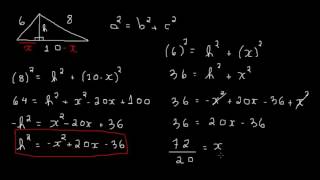 6 8
h
x 10-x
a² = b² + c²
(8)² = h² + (10-x)²
64 = h² + x² - 20x + 100
-h² = x² - 20x + 36
h² = -x² + 20x - 36
(6)² = h² + (x)²
36 = h² + x²
36 = -x² + 20x - 36 + x²
36 = 20x - 36
72/20 = x